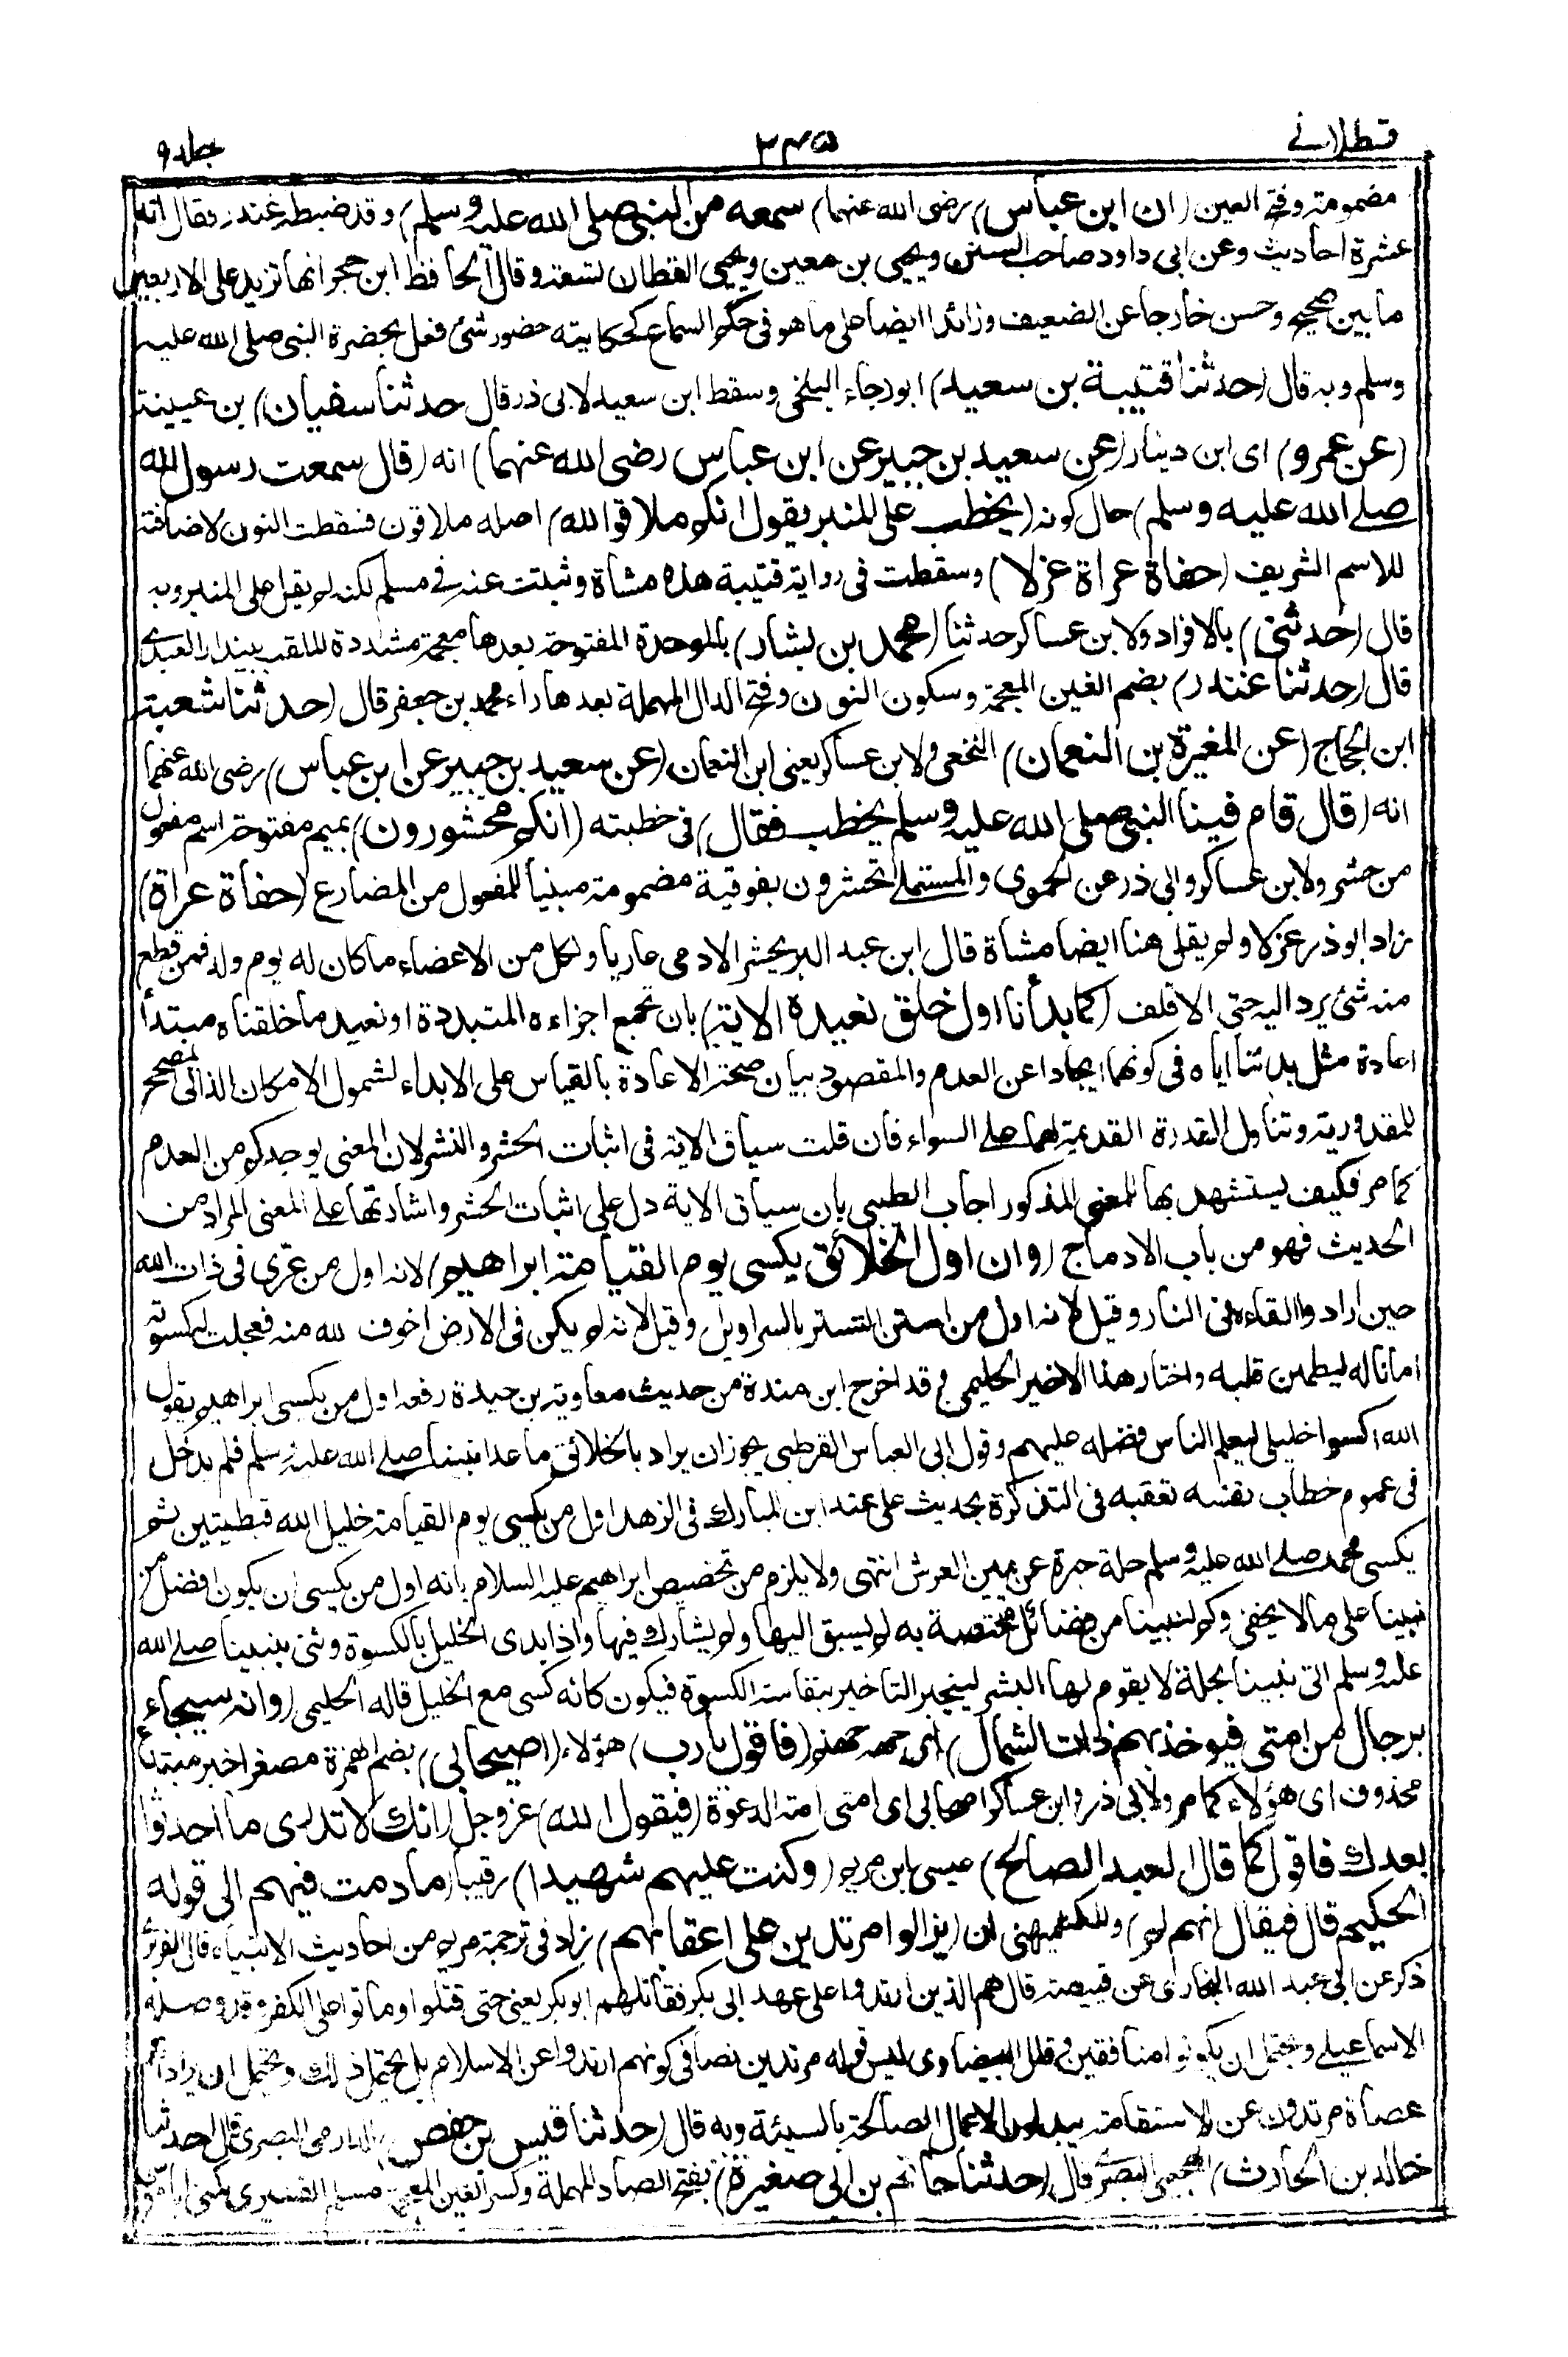 قسطلانے ٣٤٥ جلد ٩
مضمومة وفتح العين (ان ابن عباس) رضى الله عنهما) سمعه من النبى صلى الله عليه وسلم) وقد ضبطه غندر فقال انه
عشرة احاديث وعن ابى داود صاحب السنن ويحيى بن معين ويحيى القطان تسعة وقال الحافظ ابن حجر انها تزيد على الاربعين
ما بين صحيح وحسن خارجا عن الضعيف وزائدا ايضا على ما هو فى حكم السماع كحكايته حضور شئ فعل بحضرة النبى صلى الله عليه
وسلم وبه قال (حدثنا قتيبة بن سعيد) ابو رجاء البلخى وسقط ابن سعيد لابى ذر قال حدثنا سفيان) بن عيينة
(عن عمرو) اى ابن دينار (عن سعيد بن جبير عن ابن عباس رضى الله عنهما) انه (قال سمعت رسول الله
صلے الله عليه وسلم) حال كونه (يخطب على المنبر يقول انكم ملاقوا الله) اصله ملاقون فسقطت النون لاضافته
للاسم الشريف (حفاة عراة غرلا) وسقطت فى رواية قتيبة هذه مشاة وثبتت عنه فے مسلم لكنه لم يقل على المنبر وبه
قال (حدثنى) بالافراد ولابن عساكر حدثنا (محمد بن بشار) بالموحدة المفتوحة بعدها معجمة مشددة الملقب ببندار العبدى
قال (حدثنا غندر) بضم الغين المعجمة وسكون النون وفتح الدال المهملة بعدها راء محمد بن جعفر قال (حدثنا شعبة
ابن الحجاج (عن المغيرة بن النعمان) النخعى ولابن عساكر يعنى ابن النعمان (عن سعيد بن جبير عن ابن عباس) رضى الله عنهما
انه (قال قام فينا النبى صلى الله عليه وسلم يخطب فقال) فى خطبته (انكم محشورون) بميم مفتوحة اسم مفعول
من حشر ولابن عساكر وابى ذر عن الحموى والمستملے تحشرون بفوقية مضمومة مبنيا للمفعول من المضارع (حفاة عراة)
زاد ابو ذر غرلا ولم يقل هنا ايضا مشاة قال ابن عبد البر يحشر الادمى عاريا ولكل من الاعضاء ما كان له يوم ولد فمن قطع
منه شئ يرد اليه حتى الاقلف (كما بدأنا اول خلق نعيده الاية) بان نجمع اجزاءه المتبددة او نعيد ما خلقناه مبتدأ
اعادة مثل بدئنا اياه فى كونها ايجادا عن العدم والمقصود بيان صحة الاعادة بالقياس على الابداء لشمول الامكان الذاتى المصحح
للمقدورية وتناول القدرة القديمة لهما على السواء فان قلت سياق الاية فى اثبات الحشر والنشر لان المعنى يوجدكم من العدم
كما مر فكيف يستشهد بها للمعنى المذكور اجاب الطيبى بان سياق الاية دل على اثبات الحشر واشارتها على المعنى المراد من
الحديث فهو من باب الادماج (وان اول الخلائق يكسى يوم القيامة ابراهيم) لانه اول من عرى فى ذات الله
حين ارادوا القاءه فى النار وقيل لانه اول من استن التستر بالسراويل وقيل لانه لم يكن فى الارض اخوف لله منه فعجلت له كسوته
امانا له ليطمئن قلبه واختار هذا الاخير الحليمى وقد اخرج ابن مندة من حديث معاوية بن حيدة رفعه اول من يكسى ابراهيم يقول
الله اكسوا خليلى ليعلم الناس فضله عليهم وقول ابى العباس القرطبى يجوز ان يراد بالخلائق ما عدا نبينا صلے الله عليه وسلم فلم يدخل
فى عموم خطاب نفسه تعقبه فى التذكرة بحديث على عند ابن المبارك فى الزهد اول من يكسى يوم القيامة خليل الله قبطيتين ثم
يكسى محمد صلے الله عليه وسلم حلة حبرة عن يمين العرش انتهى ولا يلزم من تخصيص ابراهيم عليه السلام بانه اول من يكسى ان يكون افضل من
نبينا على ما لا يخفى وكم لنبينا من فضائل مختصة به لم يسبق اليها ولم يشارك فيها واذا بدى الخليل بالكسوة وثنى بنبينا صلے الله
عليه وسلم اتى نبينا بحلة لا يقوم لها البشر لينجبر التاخير بنفاسة الكسوة فيكون كانه كسى مع الخليل قاله الحليمى (وانه سيجاء
برجال من امتى فيوخذ بهم ذات الشمال) اى جهة جهنم (فاقول يارب) هؤلاء (اصيحابى) بضم الهمزة مصغرا خبر مبتدأ
محذوف اى هؤلاء كما مر ولابى ذر وابن عساكر اصحابى اى امتى امة الدعوة (فيقول الله) عزوجل (انك لا تدرى ما احدثوا
بعدك فاقول كما قال العبد الصالح) عيسى ابن مريم (وكنت عليهم شهيدا) رقيبا (ما دمت فيهم الى قوله
الحكيم قال فيقال انهم لم) وللكشميهنى لن (يزالوا مرتدين على اعقابهم) زاد فى ترجمة مريم من احاديث الانبياء قال الفربرى
ذكر عن ابى عبد الله البخارى عن قبيصة قال هم الذين ارتدوا على عهد ابى بكر فقاتلهم ابو بكر يعنى حتى قتلوا او ماتوا على الكفر وقد وصله
الاسماعيلے ويحتمل ان يكونوا منافقين وقال البيضاوى ليس قوله مرتدين نصا فى كونهم ارتدوا عن الاسلام بل يحتمل ذلك ويحتمل ان يراد انهم
عصاة مرتدون عن الاستقامة يبدلون الاعمال الصالحة بالسيئة وبه قال (حدثنا قيس بن حفص) الدارمى البصرى قال (حدثنا
خالد بن الحارث) الهجيمى البصرى قال (حدثنا حاتم بن ابى صغيرة) بفتح الصاد المهملة وكسر الغين المعجمة مسلم القشيرى يكنى ابا